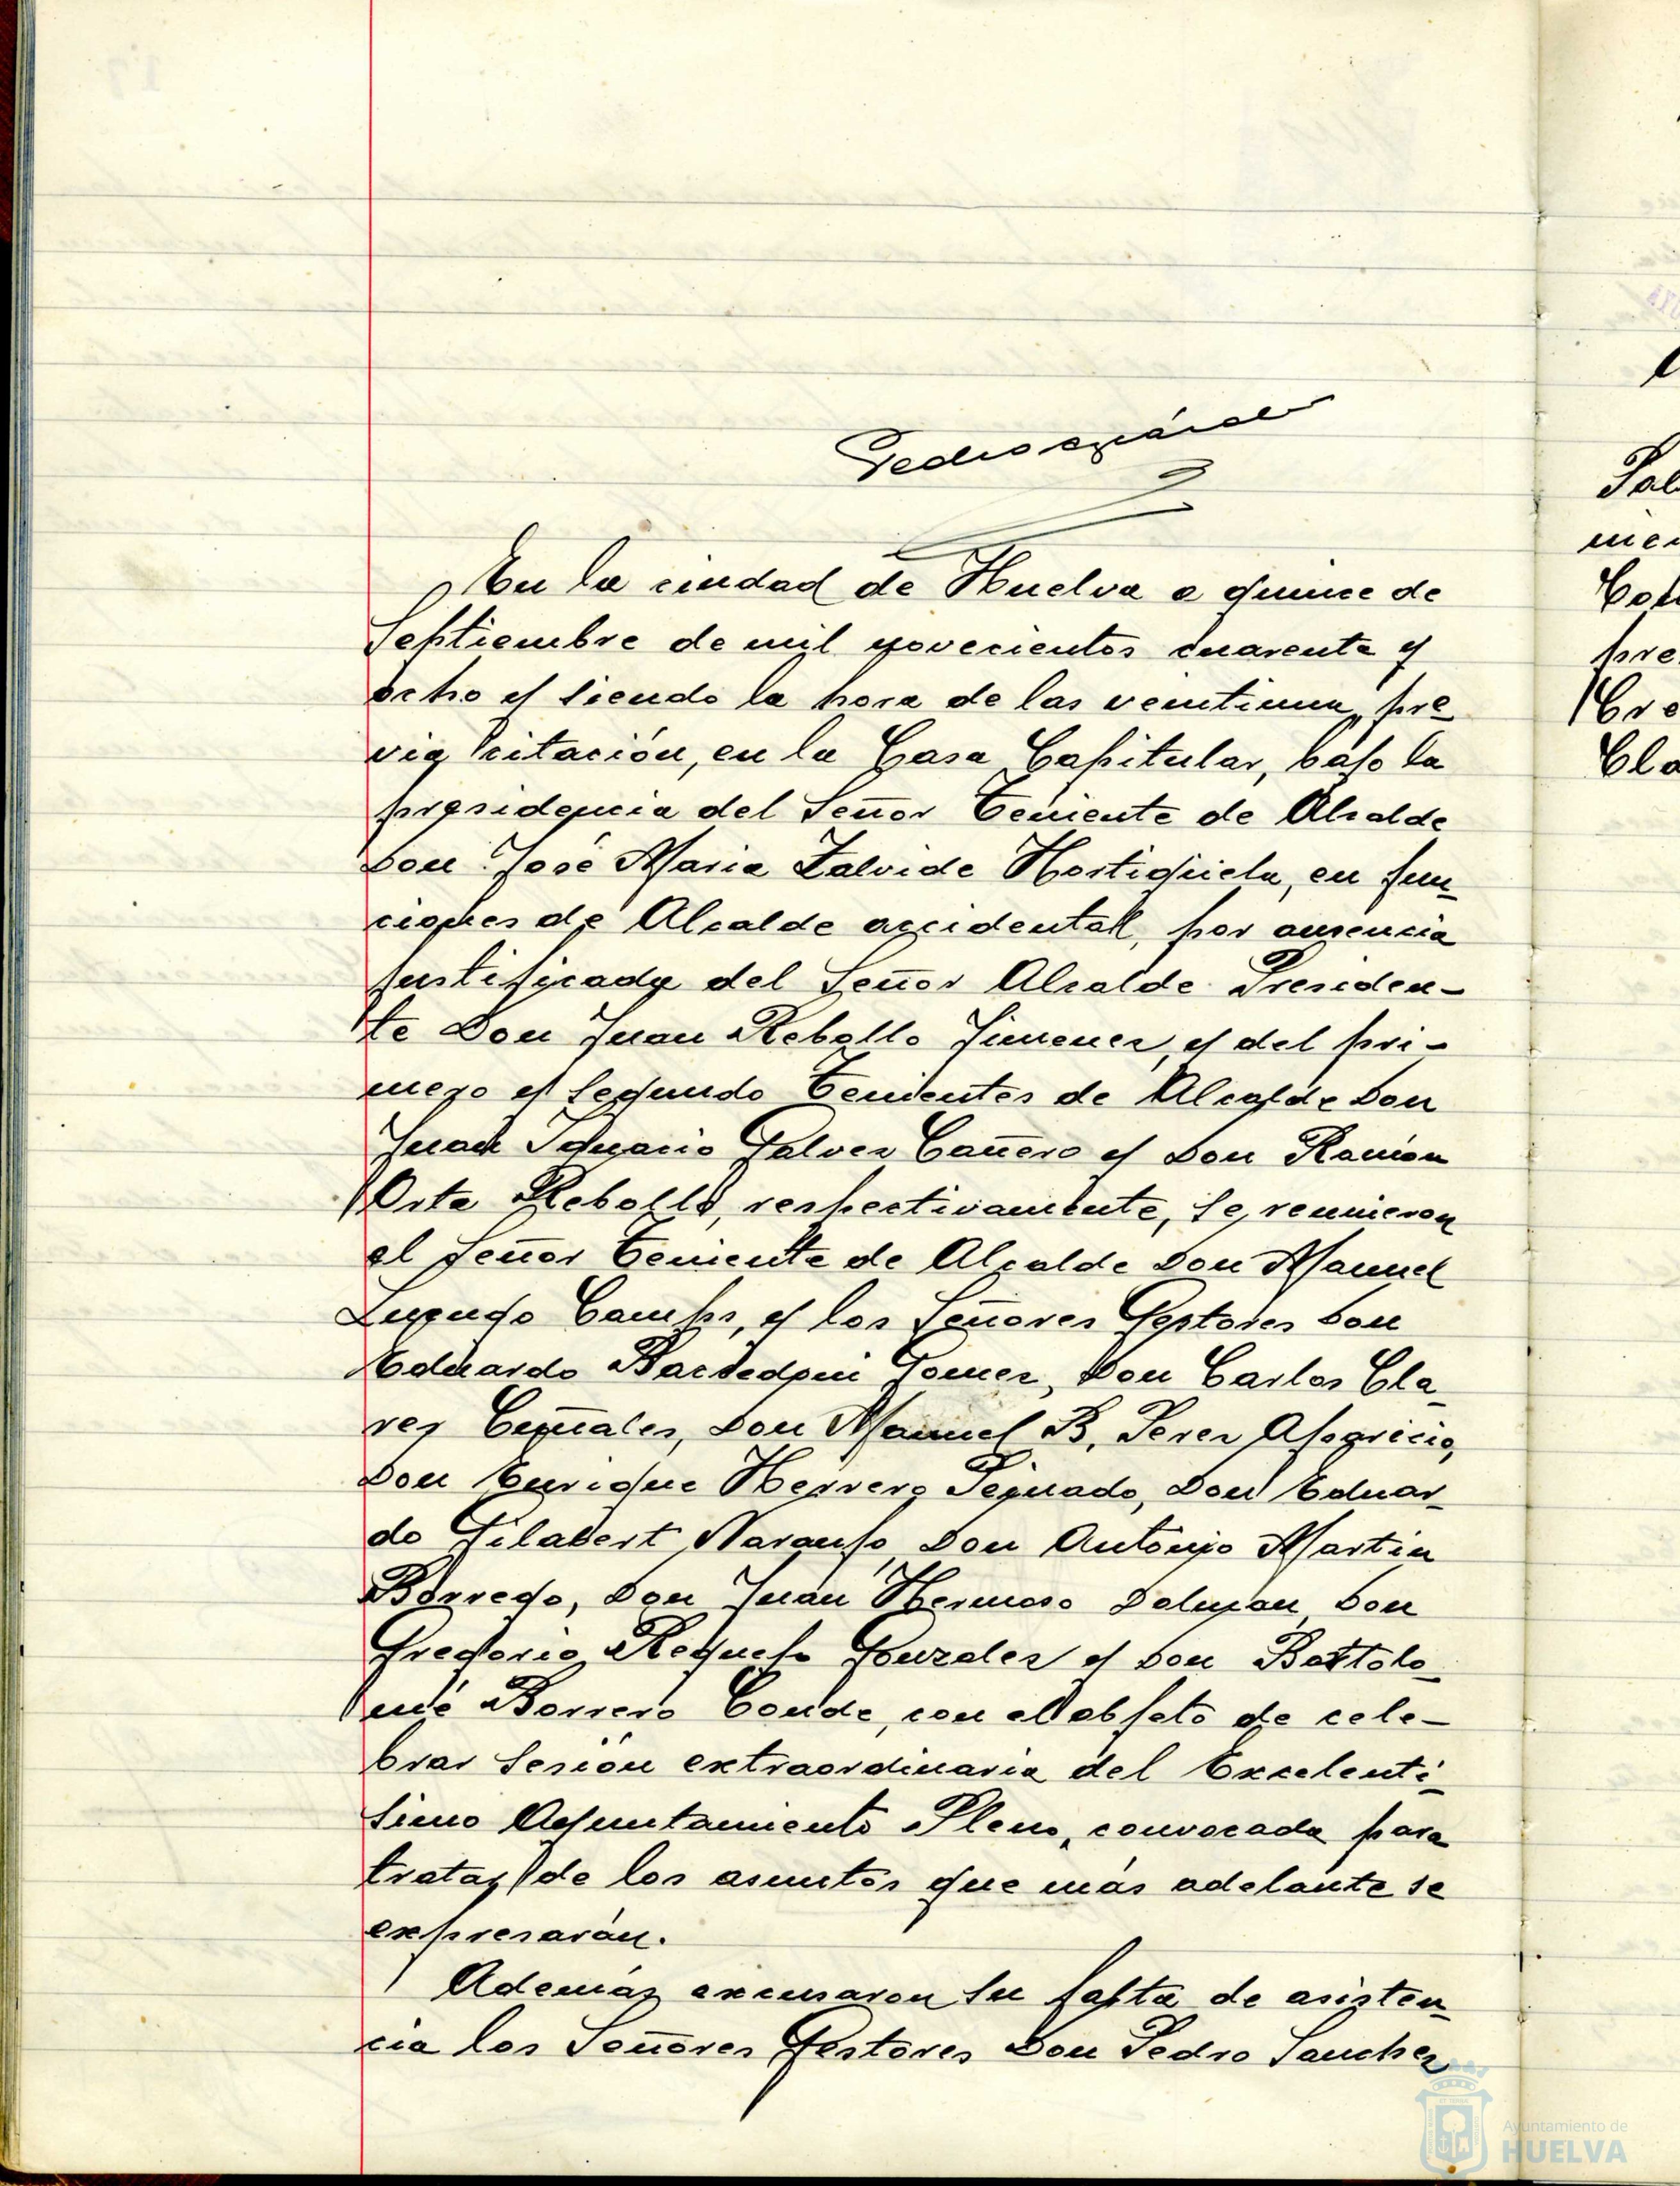 Pedro
En la ciudad de Huelva a quince de
Septiembre de mil novecientos cuarenta y
ocho y siendo la hora de las veintiuna, pre
via citación, en la Casa Capitular, bajo la
presidencia del Señor Teniente de Alcalde
Don José Maria Zalvide Hortigüela, en fun
ciones de Alcalde accidental, por ausencia
justificada del Señor Alcalde Presiden-
te Don Juan Rebollo Jimenez, y del pri-
mero y segundo Tenientes de Alcalde Don
Juan Ignacio Galvez Cañero y Don Ramón
Orta Rebollo, respectivamente, se reunieron
el Señor Teniente de Alcalde Don Manuel
Camps, y los Señores Gestores Don
Eduardo Gomez, Don Carlos Cla
res Don Manuel B. Perez
Don Enrique Herrero Don Eduar
do Gilabert Naranjo, Don Antonio Martin
Borrego, Don Juan Hermoso Don
Gregorio Requejo Gonzalez y Don Bartolo
mé Borrero Conde, con el objeto de cele-
brar sesión extraordinaria del Excelentí
simo Ayuntamiento Pleno, convocada para
tratar de los asuntos que más adelante se
expresarán.
Además excusaron su falta de asisten
cia los Señores Gestores Don Pedro Sanchez
Ayuntamiento de
HUELVA